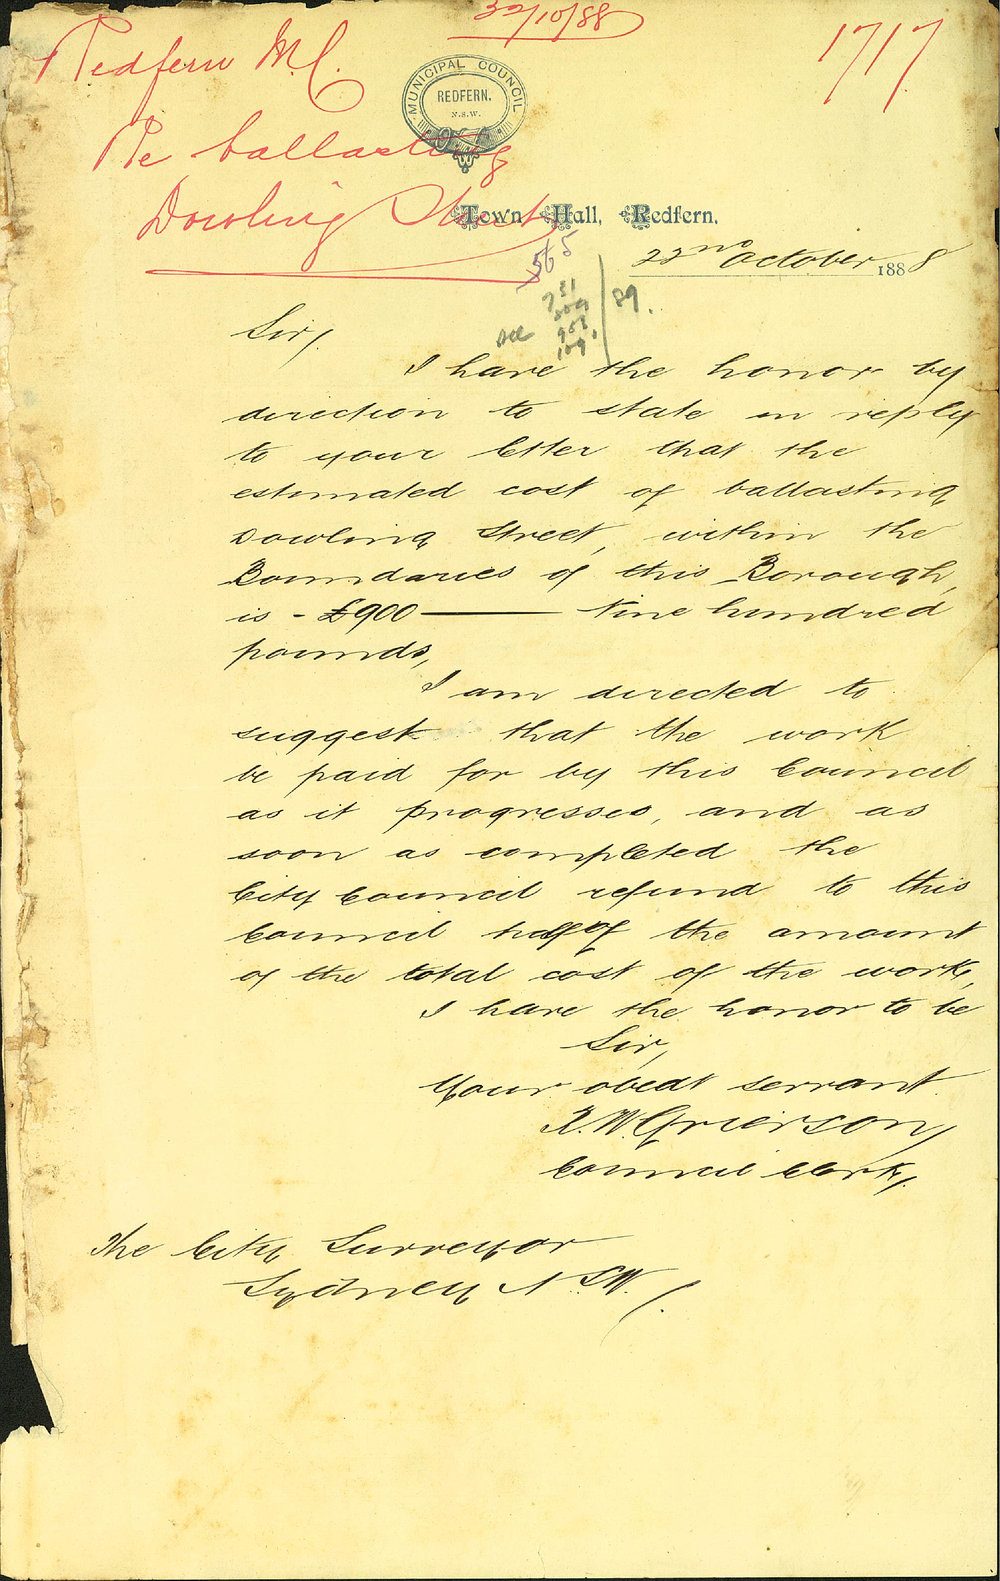 Redfern M.C.
/10/88
1717
Re ballasting
Dowling Street
MUNICIPAL COUNCIL
REDFERN.
N.S.W.
Town Hall, Redfern.
565
22nd October 1888
see
/89.
Sir,
I have the honor by
direction to state in reply
to your letter that the
estimated cost of ballasting
Dowling Street, within the
Boundaries of this Borough,
is - £900 — Nine hundred
pounds,
I am directed to
suggest that the work
be paid for by this Council
as it progresses, and as
soon as completed the
City Council refund to this
Council half of the amount
of the total cost of the work,
I have the honor to be
Sir,
Your obedt servant
R.W. Grierson,
Council Clerk,
The City Surveyor
Sydney N.S.W.